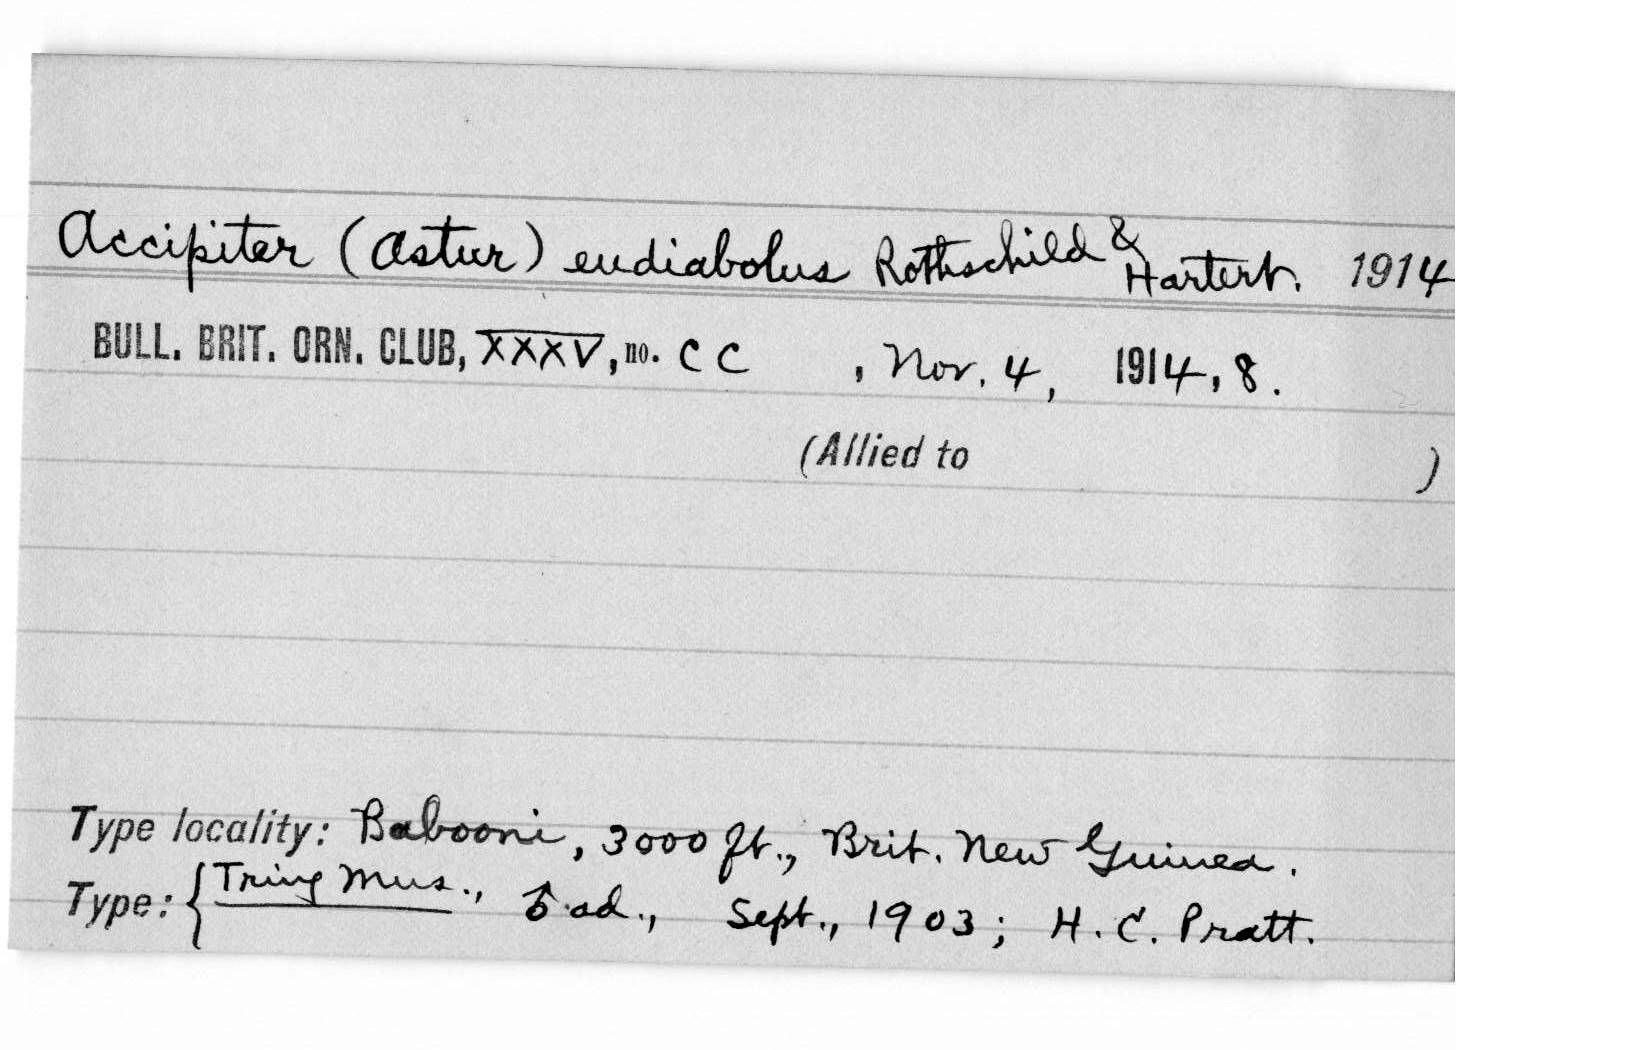 Accipiter (Astur) eudiabolus Rothschild & Hartert. 1914
BULL. BRIT. ORN. CLUB, XXXV, no. CC , Nov. 4, 1914, 8.
(Allied to )
Type locality: Babooni, 3000 ft., Brit. New Guinea.
Type: { Tring Mus., ♂ ad., Sept., 1903; H. C. Pratt.